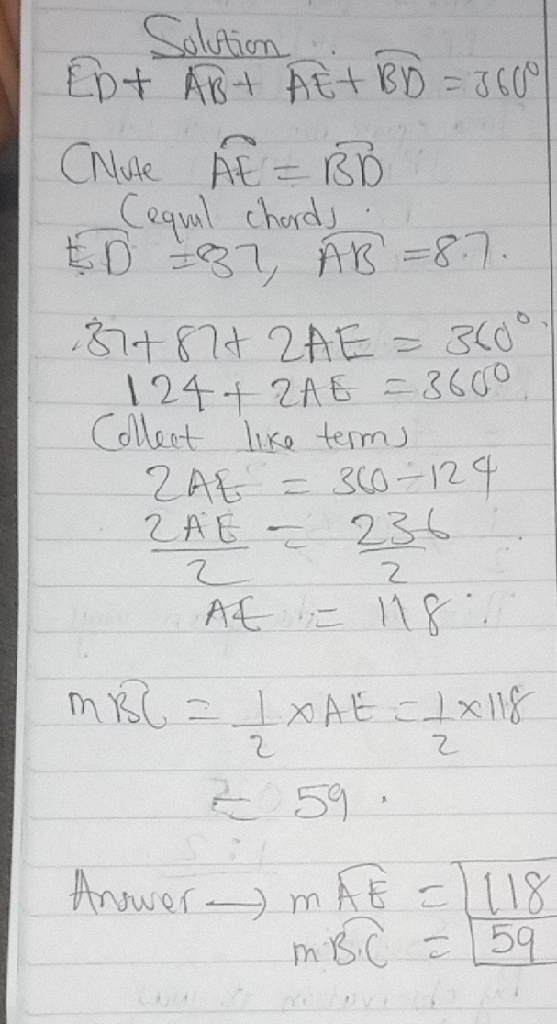 Solution
ED + AB + AE + BD = 360°
(Note AE = BD
(equal chords.
ED = 37, AB = 87.
37 + 87 + 2AE = 360°
124 + 2AE = 360°
Collect like terms
2AE = 360 - 124
2AE = 236
2 2
AE = 118
mBC = 1 x AE = 1 x 118
2 2
= 59.
Answer → mAE = 118
mBC = 59